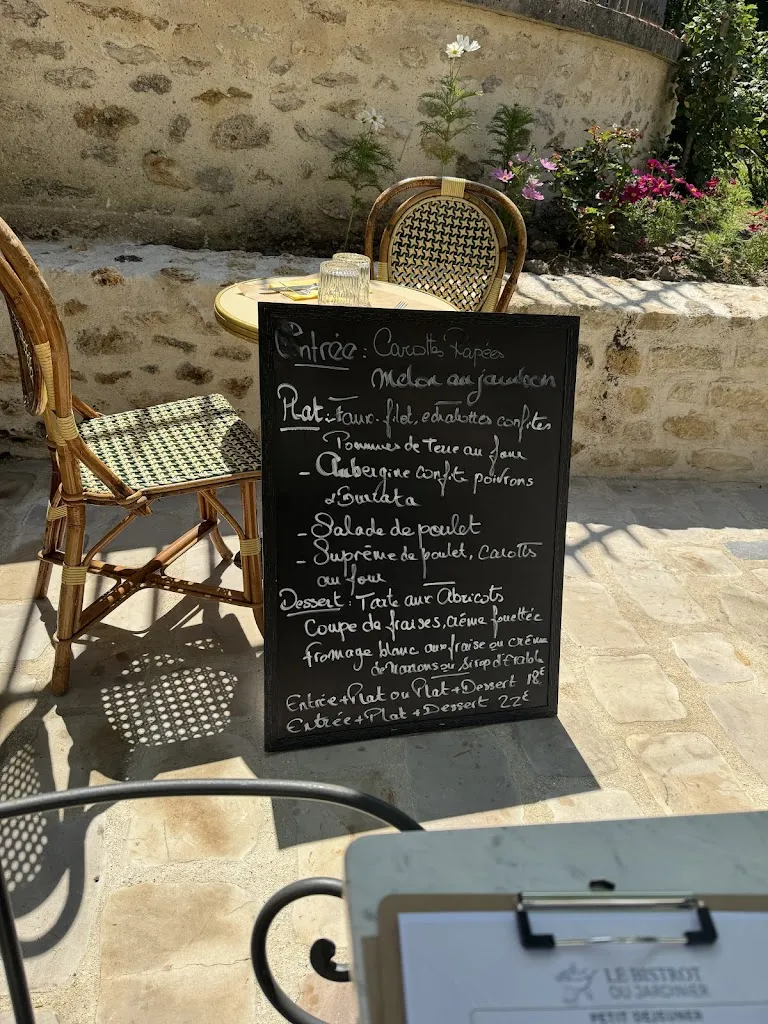 Entrée : Carottes Rapées
Melon au jambon
Plat : Faux-filet, echalottes confites
Pommes de Terre au four
- Aubergine confite poivrons
& Burrata
- Salade de poulet
- Suprême de poulet, Carottes
au four
Dessert : Tarte aux Abricots
Coupe de fraises, crème fouettée
fromage blanc aux fraise ou crème
de marrons ou Sirop d'érable
Entrée+Plat ou Plat+Dessert 18€
Entrée+Plat+Dessert 22€
LE BISTROT
DU JARDINIER
PETIT DEJEUNER